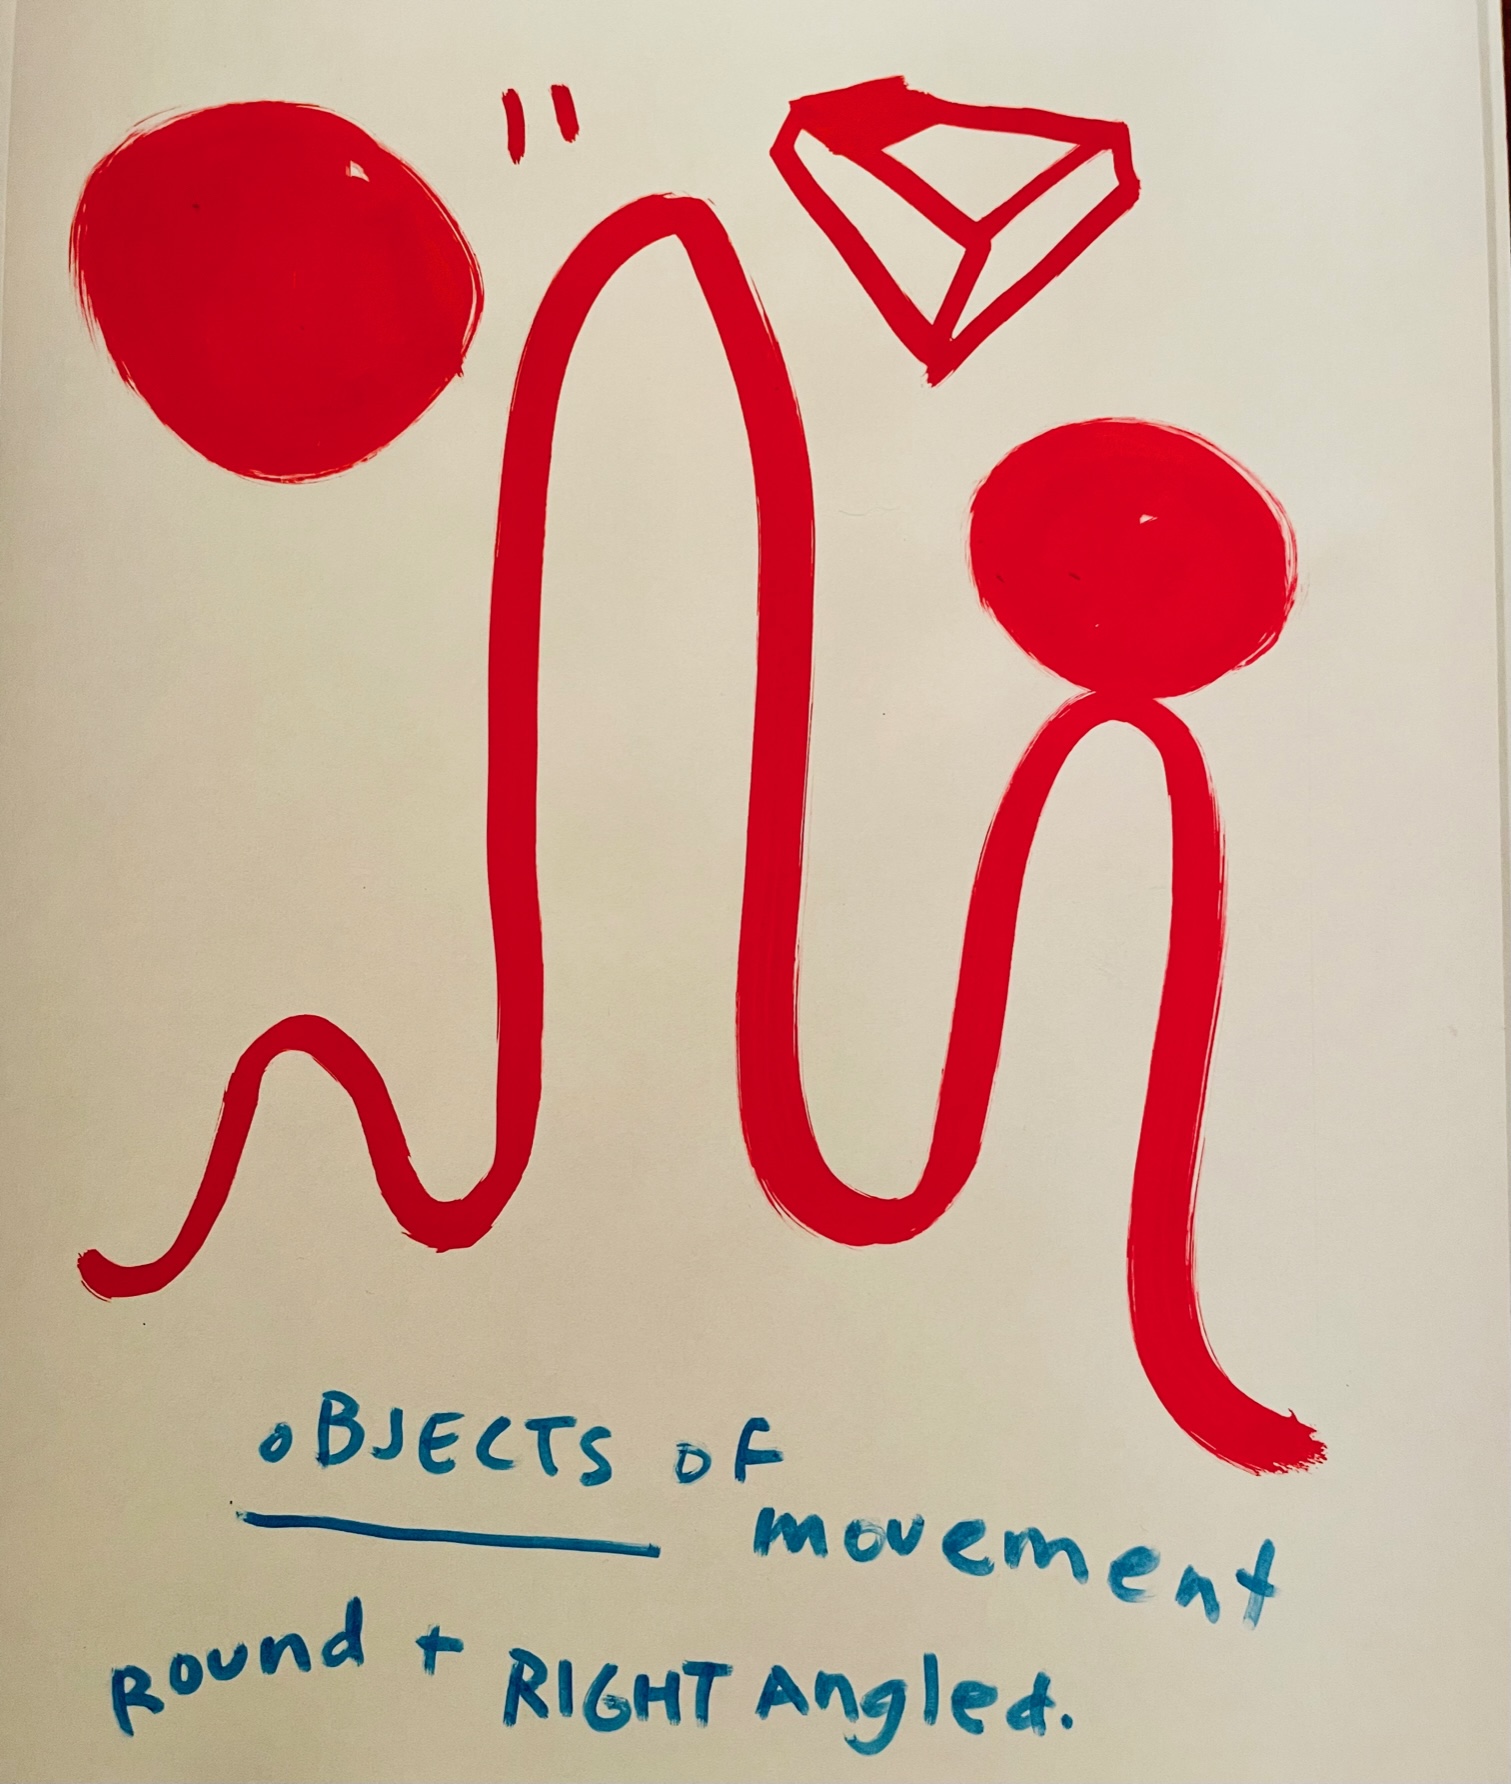 oBJECTS oF
movement
Round + RIGHT Angled.